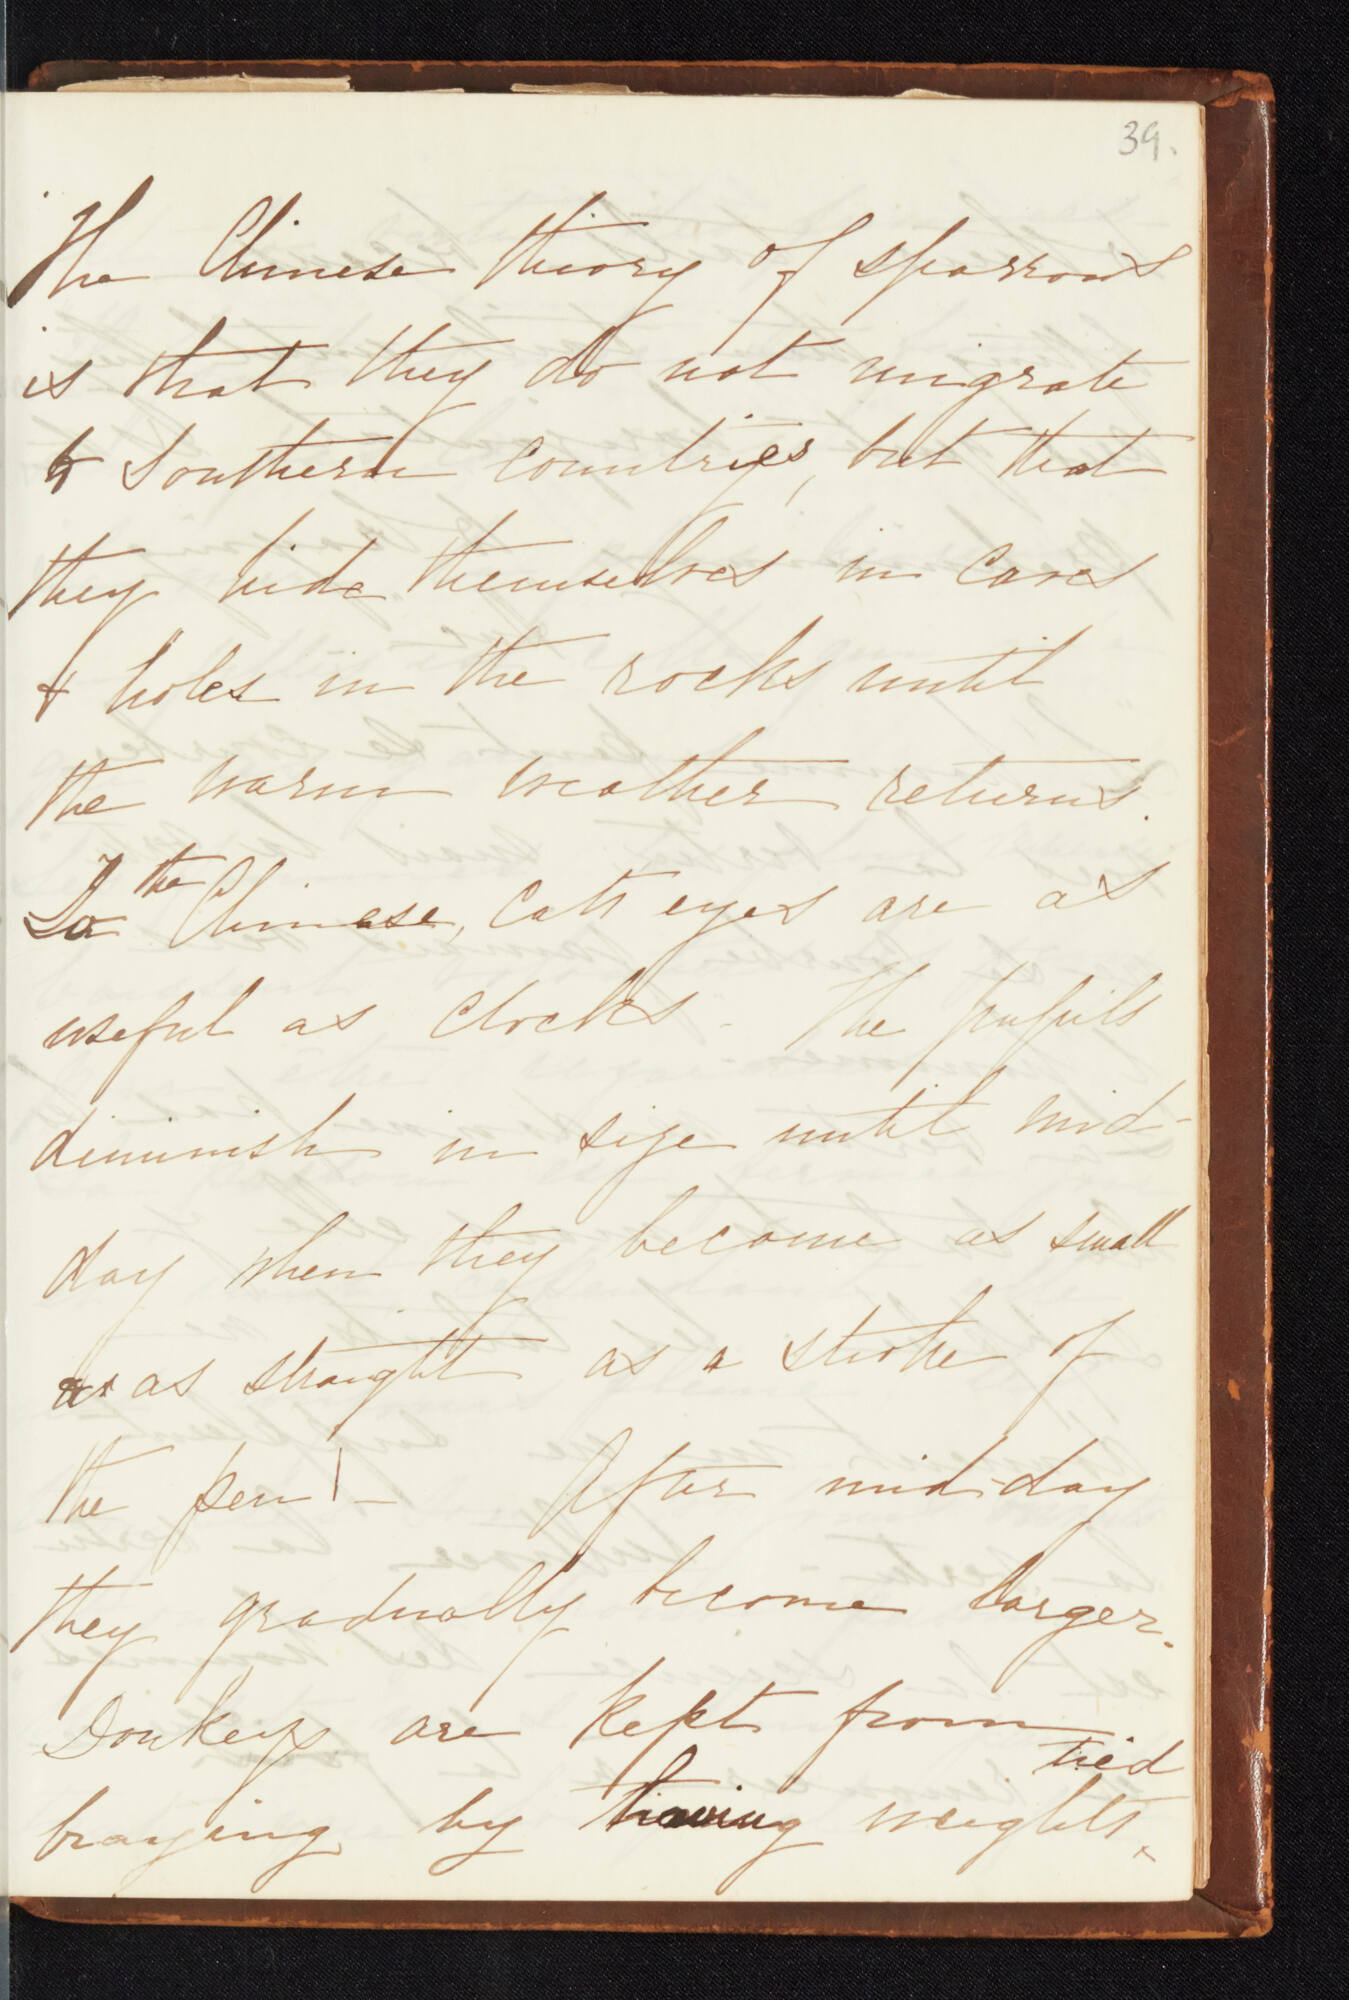 39.
The Chinese theory of sparrows
is that they do not migrate
to Southern countries, but that
they hide themselves in caves
& holes in the rocks until
the warm weather returns.
To the Chinese, cats eyes are as
useful as clocks. The pupils
diminish in size until mid-
day when they become as small
as straight as a stroke of
the pen! - After mid-day
they gradually become larger.
Donkeys are kept from
braying by having weights tied